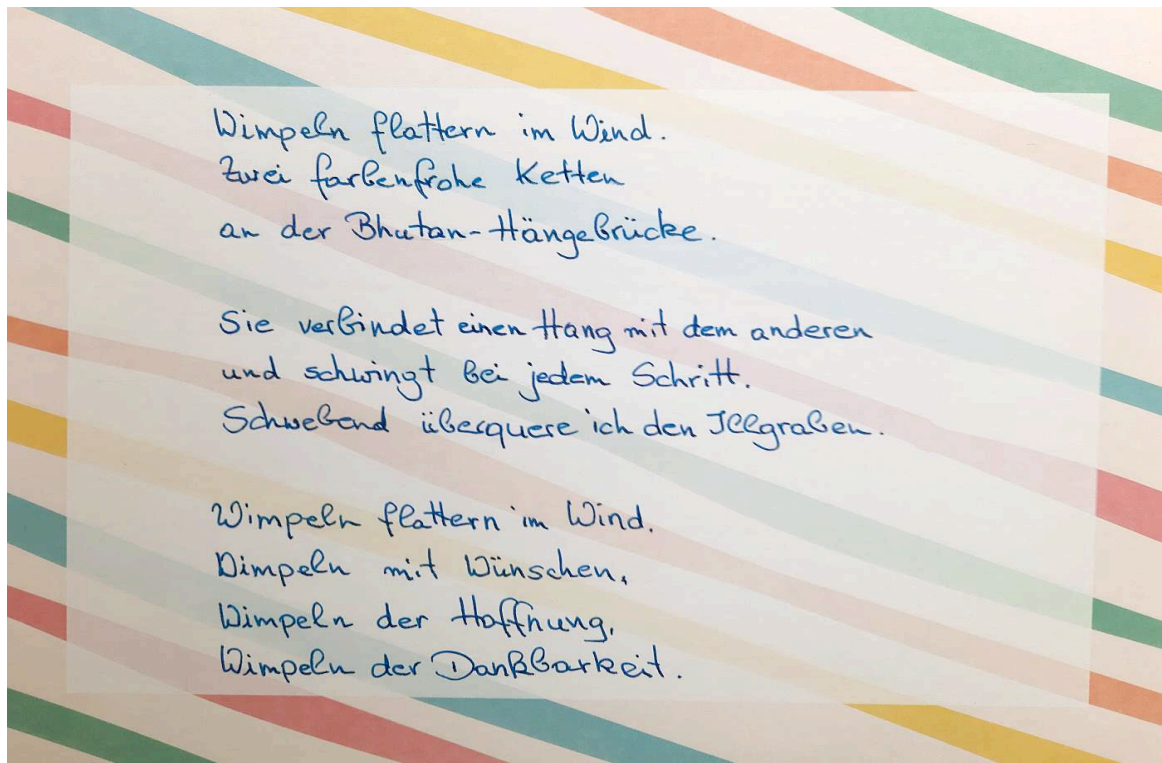 Wimpeln flattern im Wind.
Zwei farbenfrohe Ketten
an der Bhutan-Hängebrücke.
Sie verbindet einen Hang mit dem anderen
und schwingt bei jedem Schritt.
Schwebend überquere ich den Illgraben.
Wimpeln flattern im Wind.
Wimpeln mit Wünschen,
Wimpeln der Hoffnung,
Wimpeln der Dankbarkeit.